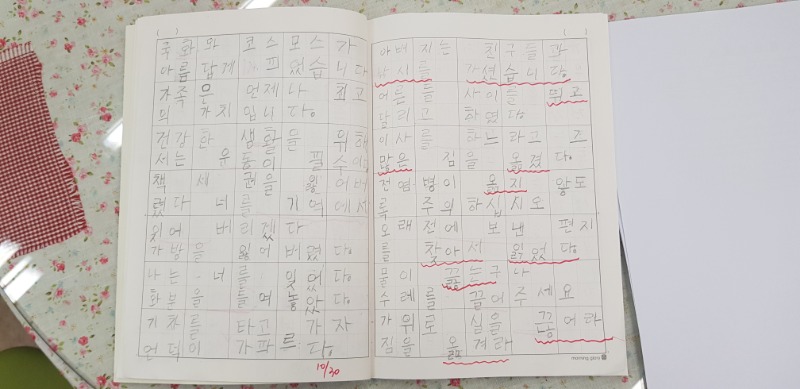 국화와 코스모스가
아름답게 피었습니다
가족은 언제나 최고
의 가치입니다.
건강한 생활을 위해
서는 필수
책 세 권을 잃어버
렸다 너를 기억에서
잊어 버리겠다
가방을 잃어버렸다.
나는 너를 잊었다.
화분을 들여놓았다.
기차를 타고 가자
언덕이 가파르다.
10/30
아버지는 친구들과
가셨습니다.
어른들 사이를 뛰고
달리고 하였다.
이사를 하느라고 ㅈ
많은 짐을 옮겼다.
전염병이 옮지 않도
록 주의하십시오
오래전에 보낸 편지
를 찾아서 읽었다.
물이 끓는구나
수레를 끌어주세요
가위로 실을 끊어라
짐을 옮겨라
morning glory